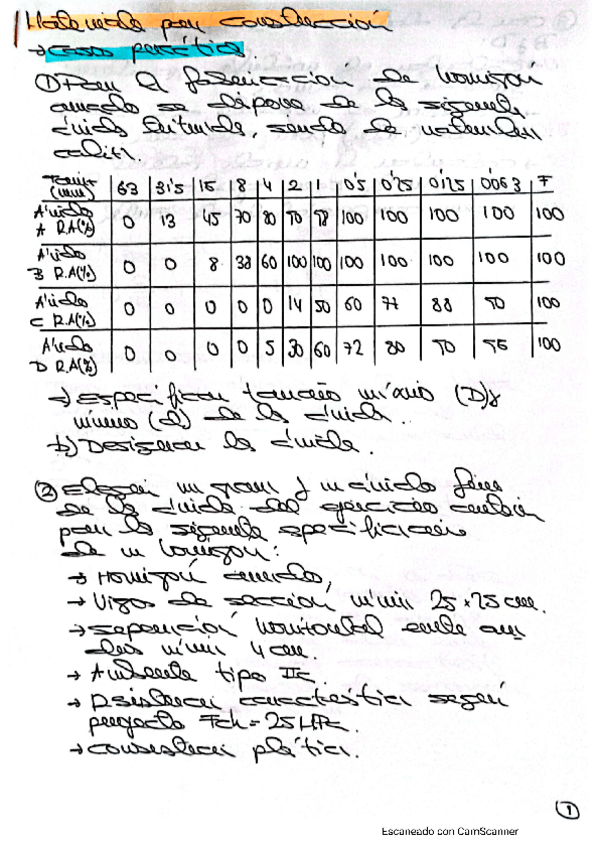 Materiales para construcción
→ caso práctico.
① Para la fabricación de hormigón
armado se dispone de los siguientes
áridos naturales, siendo de naturaleza
caliza.
Tamiz (mm) | 63 | 31'5 | 16 | 8 | 4 | 2 | 1 | 0'5 | 0'25 | 0'125 | 0'063 | F
Árido A R.A(%) | 0 | 13 | 45 | 70 | 80 | 90 | 98 | 100 | 100 | 100 | 100 | 100
Árido B R.A(%) | 0 | 0 | 8 | 38 | 60 | 100 | 100 | 100 | 100 | 100 | 100 | 100
Árido C R.A(%) | 0 | 0 | 0 | 0 | 0 | 14 | 50 | 60 | 77 | 88 | 90 | 100
Árido D R.A(%) | 0 | 0 | 0 | 0 | 5 | 30 | 60 | 72 | 80 | 90 | 95 | 100
→ Especificar tamaño máximo (D) y
mínimo (d) de los áridos.
b) Designar los áridos.
② Elegir un grueso y un árido fino
de los áridos del ejercicio anterior
para las siguientes especificaciones
de un hormigón:
→ Hormigón armado,
→ Vigas de sección mínima 25 x 25 cm.
→ Separación horizontal entre
mínima 4 cm.
→ Ambiente tipo
→ Resistencia característica según
proyecto Fck = 25 MPa.
→ consistencia plástica.
①
Escaneado con CamScanner